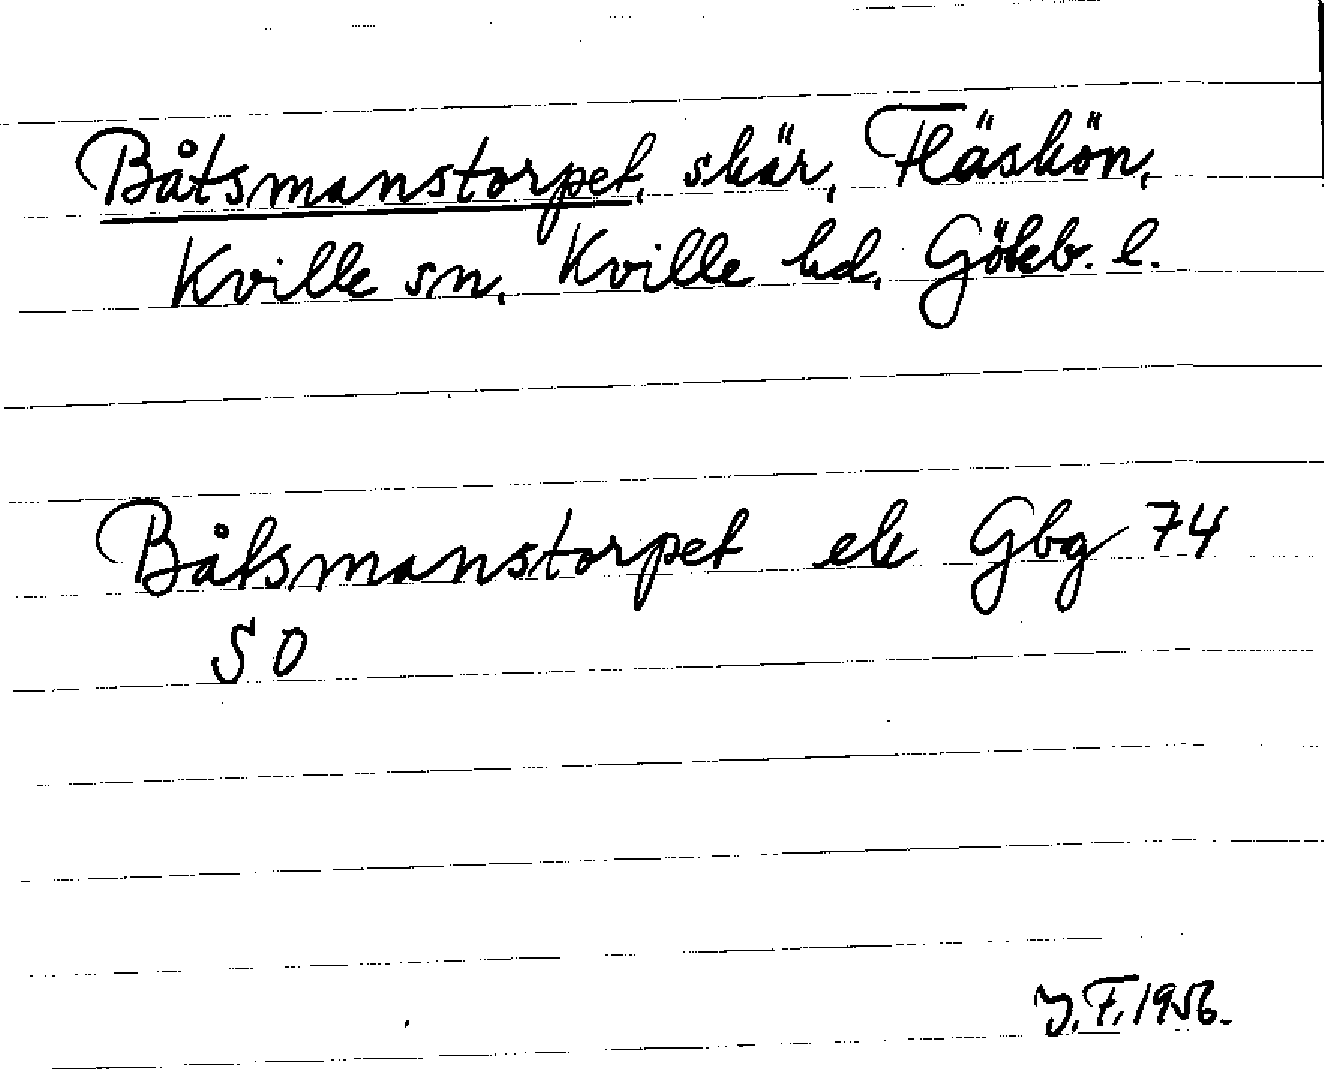 Båtsmanstorpet, skär, Fläskön,
Kville sn, Kville hd, Göteb. l.
Båtsmanstorpet ek Gbg 74
SO
Y.F. 1956.